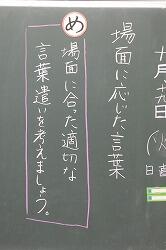 十月十九日(火)
日直
場面に応じた言葉
め
場面に合った適切な
言葉遣いを考えましょう。